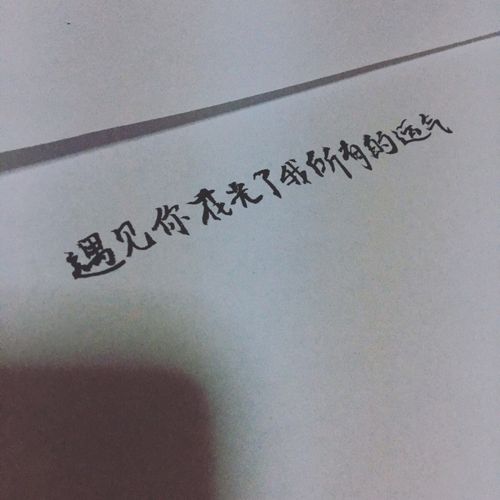 遇见你花光了我所有的运气